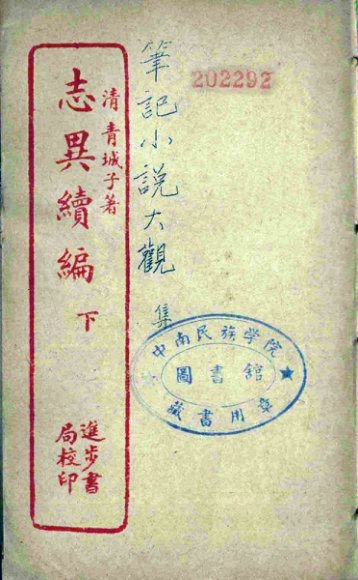 202292
筆記小說大觀 集
清 青城子著
志異續編 下
進步書
局校印
中南民族學院
圖書館
藏書用章